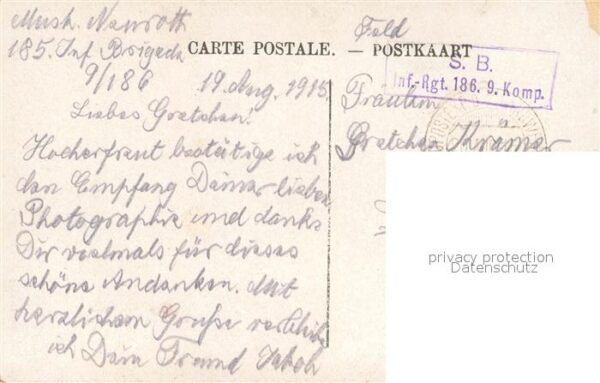 Musk. Neuroth
185. Inf. Brigade
9/186
Feld
CARTE POSTALE. — POSTKAART
S. B.
Inf.-Rgt. 186. 9. Komp.
19. Aug. 1915.
Liebes Gretchen!
Hocherfreut bestätige ich
den Empfang Deiner lieben
Photographie und danke
Dir vielmals für dieses
schöne Andenken. Mit
herzlichem Gruße verbleibe
ich Dein Freund Jakob
Fräulein
Gretchen Kramer
privacy protection
Datenschutz